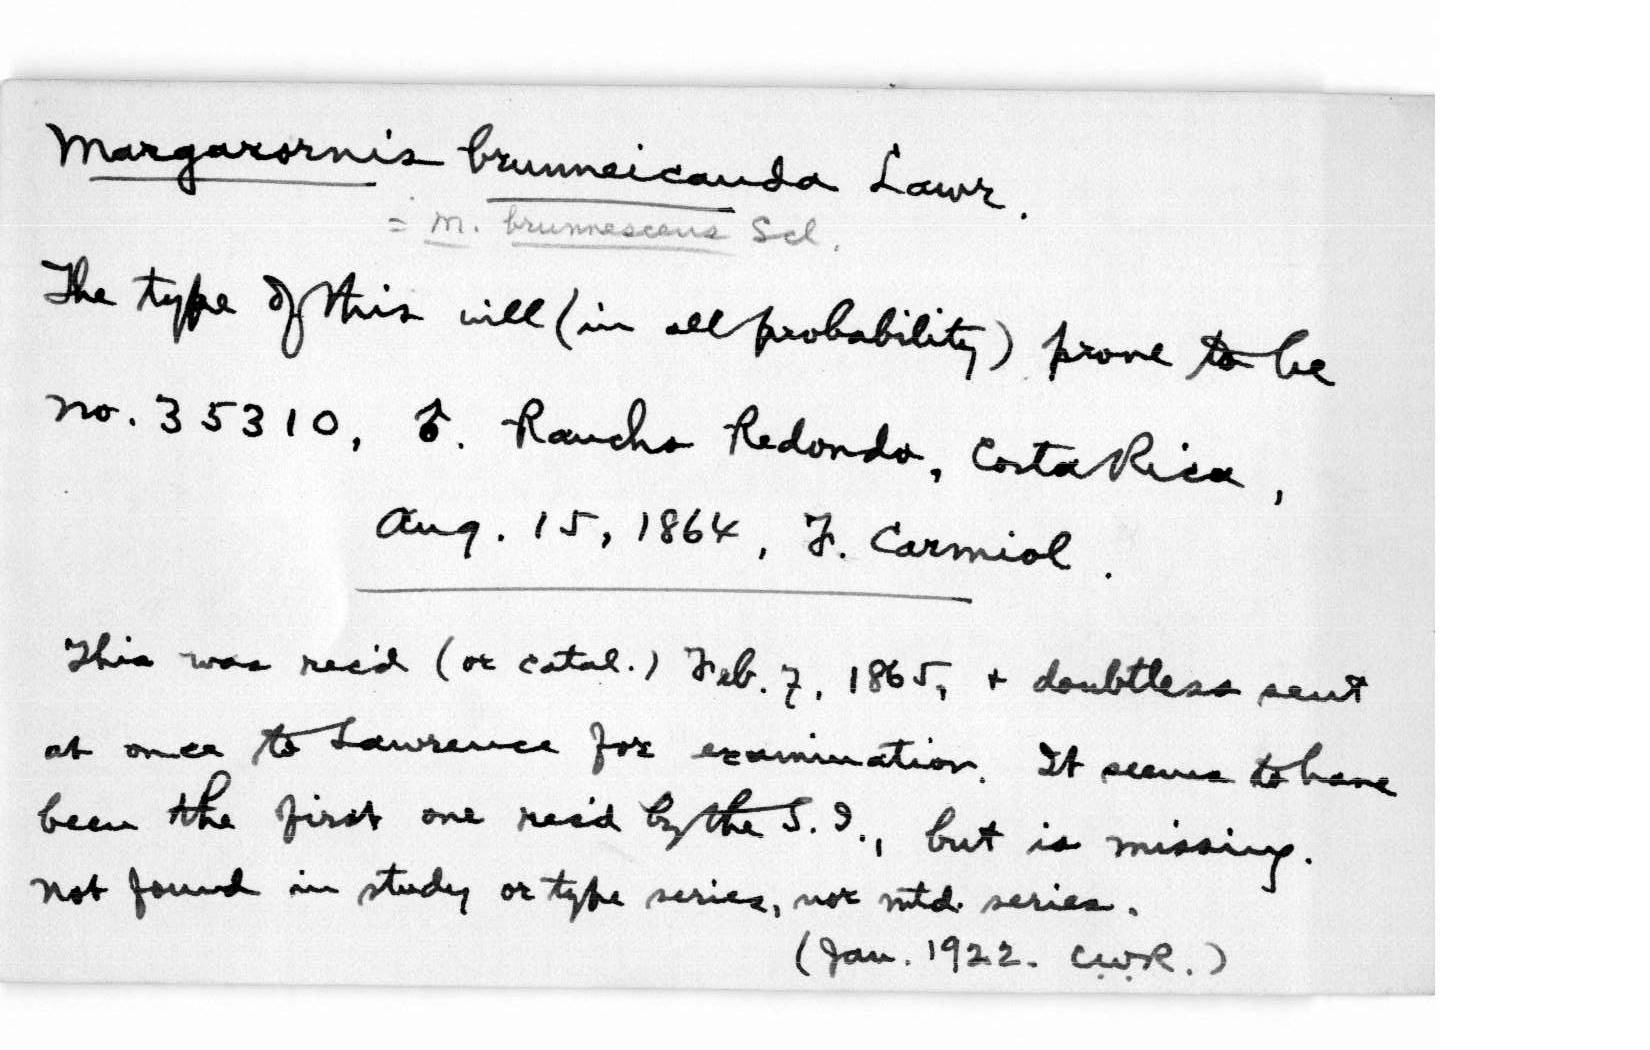 Margarornis brunneicauda Lawr.
= M. brunnescens Scl.
The type of this will (in all probability) prove to be
no. 35310, ♂. Rancho Redondo, Costa Rica,
Aug. 15, 1864, F. Carmiol.
This was rec'd (or catal.) Feb. 7, 1865, + doubtless sent
at once to Lawrence for examination. It seems to have
been the first one rec'd by the S.I., but is missing.
Not found in study or type series, nor mtd. series.
(Jan. 1922. C.W.R.)